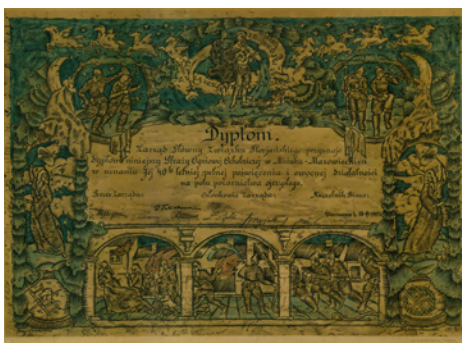 Dyplom.
Zarząd Główny Związku Florjańskiego przyznaje
dyplom niniejszy Straży Ogniowej Ochotniczej w Mińsku-Mazowieckim
w uznaniu Jej 40 letniej pełnej poświęcenia i owocnej działalności
na polu pożarnictwa ojczystego.
Prezes Zarządu: Członkowie Zarządu: Naczelnik Biura:
Warszawa